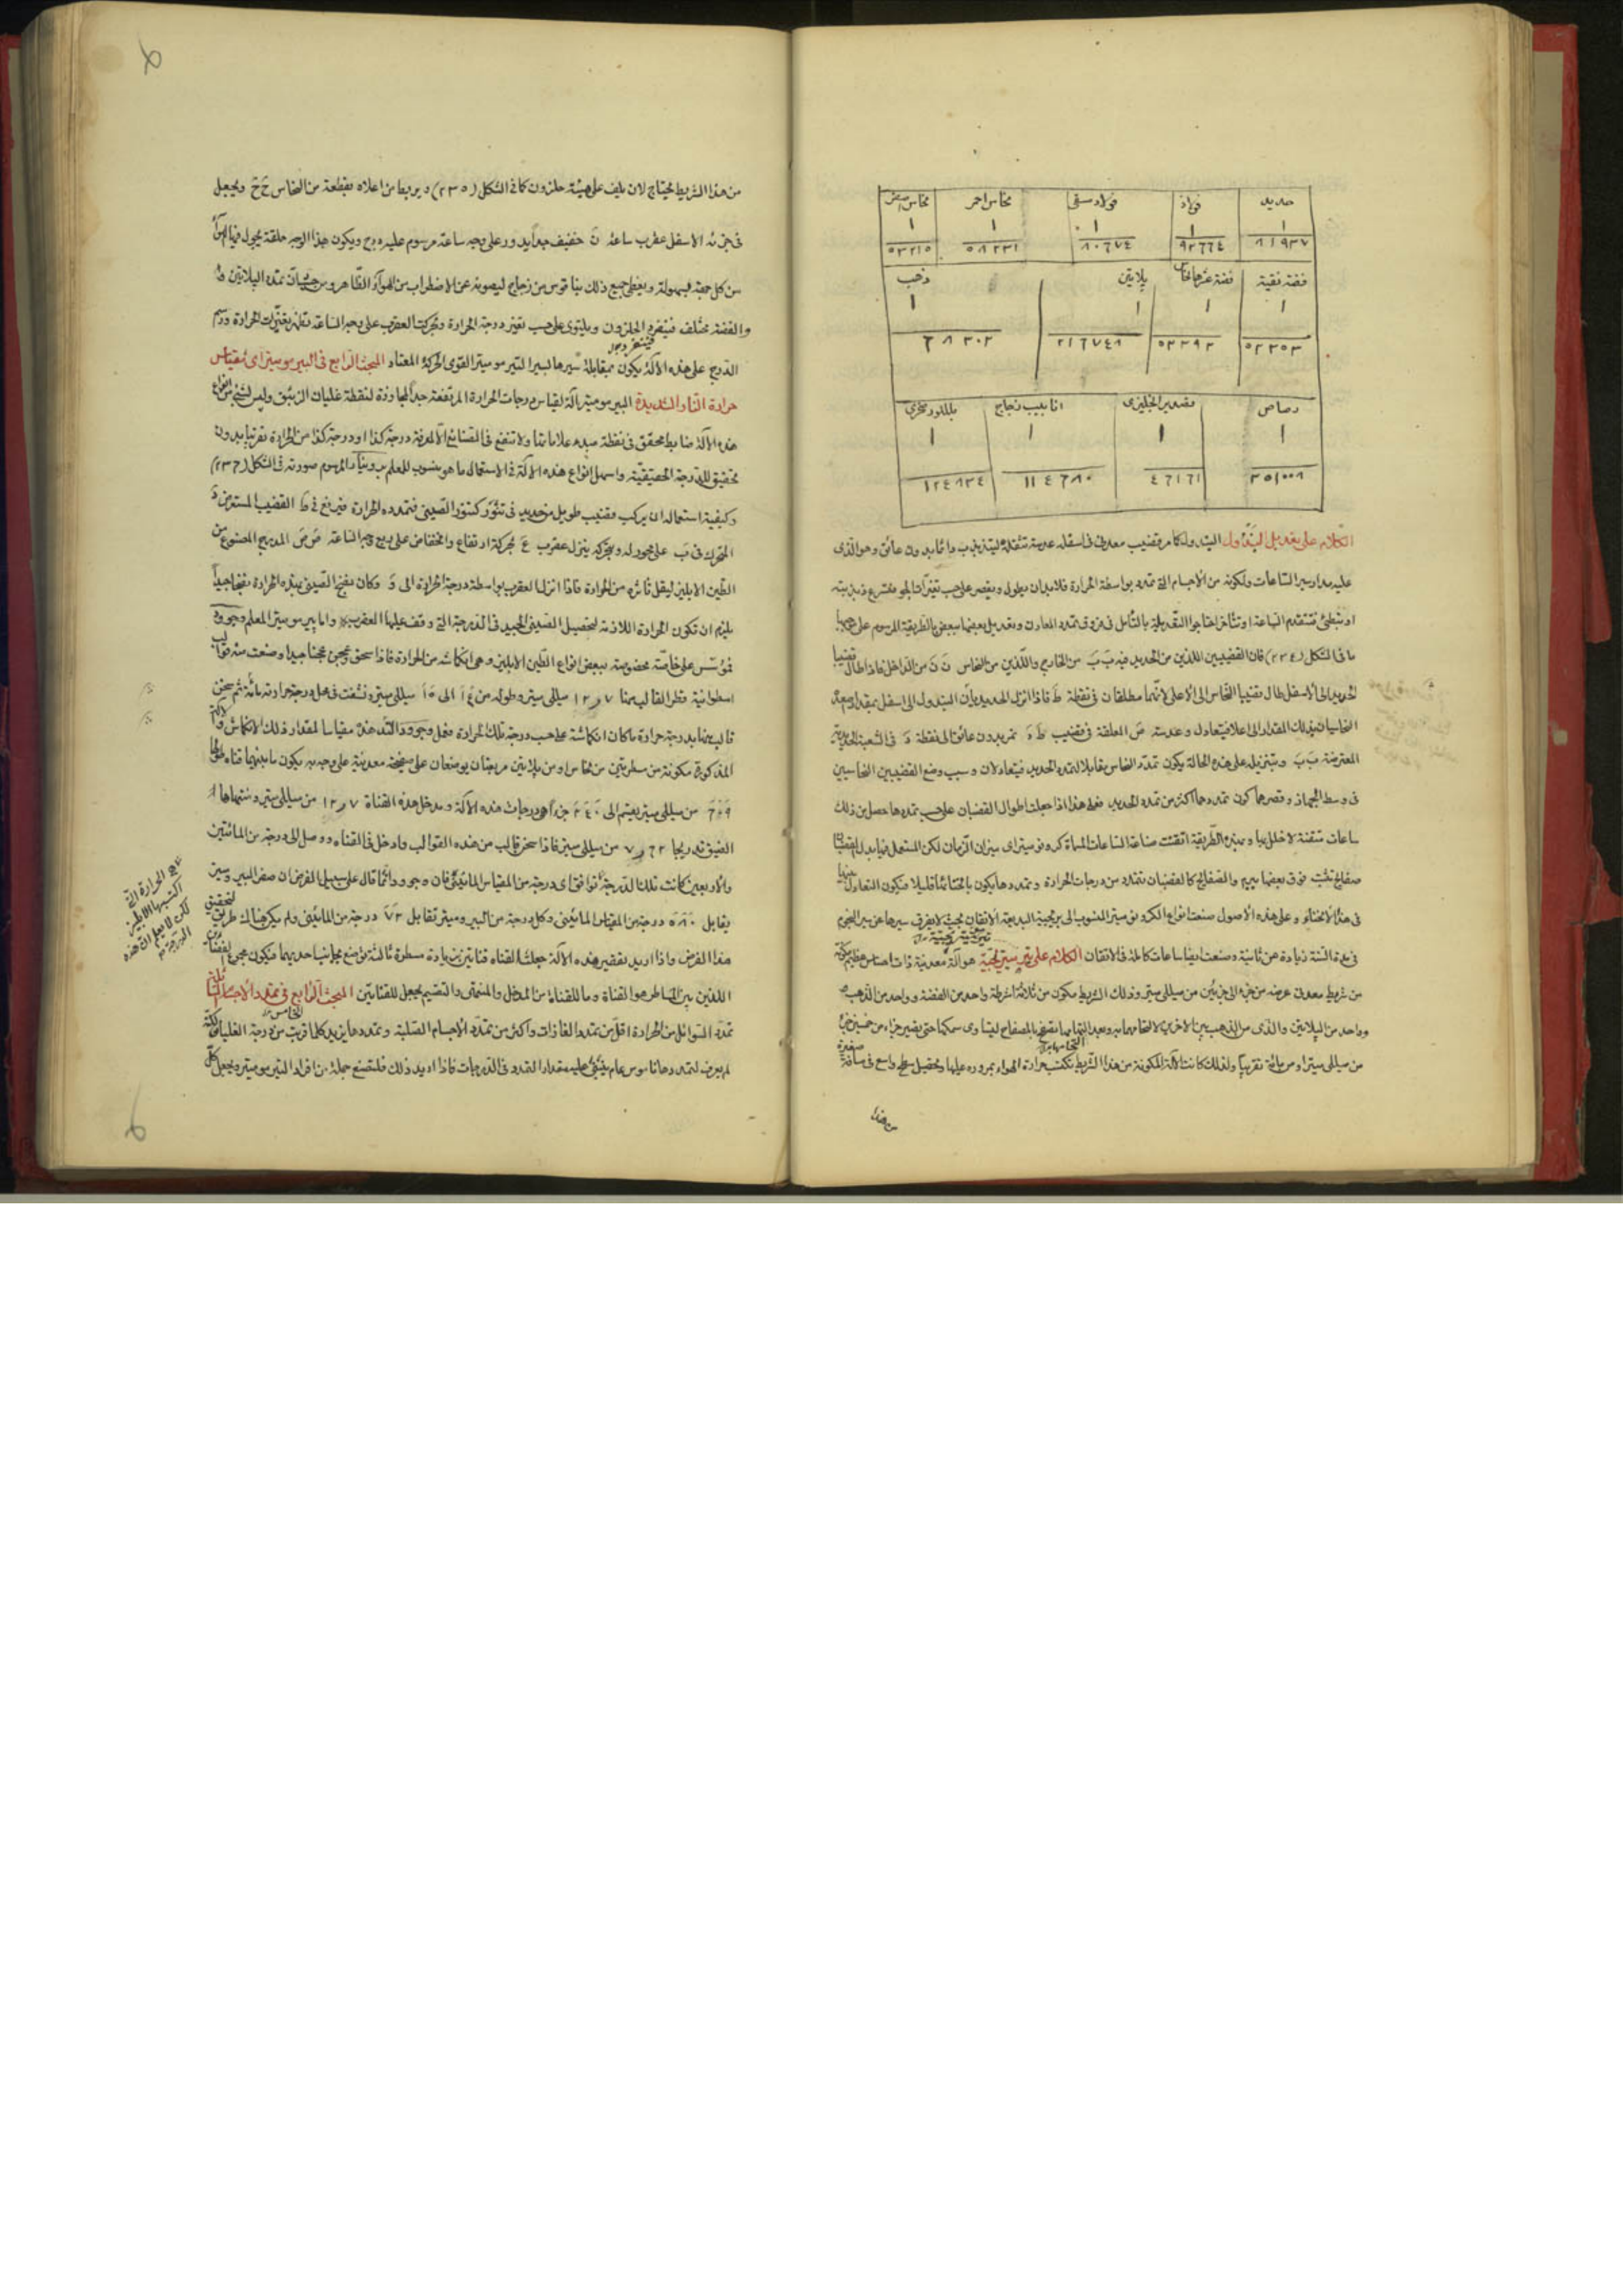 حديد فولاذ فولاد سقى نحاس احمر نحاس اصفر
١ ١ ١ ١ ١
٨١٩٣٧ ٩٢٦٦٤ ٨٠٦٧٤ ٥٨٢٣١ ٥٣٢١٥
فضة نقية فضة پلاتين ذهب
١ ١ ١ ١
٥٢٣٥٣ ٥٢٣٩٣ ٢١٦٧٤٨ ٦٨٢٠٢
رصاص قصدير انجليزى انابيب زجاج بللور
١ ١ ١ ١
٣٥١٠٠٨ ٤٦١٦١ ١١٤٦٨٠ ١٢٤٨٣٤
الكلام على تعديل البندول البندول كما مر قضيب معدنى فى اسفله عدسة تثقله ليتذبذب دائما بدون عائق وهو الذى
عليه مدار سير الساعات ولكونه من الاجسام التى تتمدد بواسطة الحرارة فلا بد ان يطول ويقصر على حسب تغيرات الجو فتسرع ذبذبته
او تبطئ فتتقدم الساعة او تتأخر احتاجوا لتعديله بالتأمل فى فروق تمدد المعادن وتعديل بعضها ببعض بالطريقة المرسوم على
ما فى الشكل (٢٣٤) فان القضيبين اللذين من الحديد فيه ب ب من الخارج واللذين من النحاس ن ن من الداخل فاذا طال قضيبا
الحديد الى الاسفل طال قضيبا النحاس الى الاعلى لانهما مطلقان فى نقطة ط فاذا انزل الحديد بأن البندول الى اسفل بمقدار
النحاسيان بذلك المقدار الى اعلا فيتعادل وعدسته ص المعلقة فى قضيب ط د تمر بدون عائق الى نقطة د فى الشعبة الحديدية
المعترضة ب ب وبتنزيله على هذه الحالة يكون تمدد النحاس مقابلا لتمدد الحديد فيتعادلان وسبب وضع القضيبين النحاسيين
فى وسط الجهاز وقصرهما كون تمددهما اكثر من تمدد الحديد فعلى هذا اذا جعلت اطوال القضبان على حسب تمددها حصل من ذلك
ساعات متقنة لا خلل بها وبهذه الطريقة اتقنت صناعة الساعات المسماة كرونوميتر اى ميزان الزمان لكن المستعمل فيها بدل القضبان
صفائح تثبت فوق بعضها والصفائح كالقضبان تتمدد من درجات الحرارة وتمددها يكون بانحنائها قليلا فيكون التعادل
فى هذا الانحناء وعلى هذه الاصول صنعت انواع الكرونوميتر المنسوب الى بريجيه البديعة الاتقان بحيث لا يفرق سيرها عن سير النجوم
فى مدة السنة زيادة عن ثانية وصنعت ايضا ساعات كاملة فى الاتقان الكلام على هو آلة معدنية ذات احساس عظيم
من شريط معدنى عرضه من جزء الى جزئين من ميللى ميتر وذلك الشريط مكون من ثلاثة اشرطة واحد من الفضة وواحد من الذهب
وواحد من البلاتين والذى من الذهب بين الاخرين
من ميللى ميتر او من مائة تقريبا ولذلك كانت الآلة المكونة من هذا الشريط تكتسب حرارة الهواء بمروره عليها وتحصيل سطح واسع فى مسافة صغيرة
من هذا
من هذا الشريط يحتاج لان يلف على هيئة حلزون كما فى الشكل (٢٣٥) ويربط من اعلاه بقطعة من النحاس ح ح ويجعل
فى جزئه الاسفل عقرب ساعة ن خفيف جدا يدور على وجه ساعة مرسوم عليه ويكون هذا الوجه حلقة يجول فيها الهوآء
من كل جهة بسهولة ويغطى جميع ذلك بناقوس من زجاج ليصونه عن الاضطراب من الهوآء الظاهر ومن حيث ان تمدد البلاتين
والفضة مختلف فينفرد الحلزون ويلتوى على حسب تغير درجة الحرارة وتحرك العقرب على وجه الساعة تظهر تغيرات الحرارة ورسم
الدرج على هذه الآلة يكون بمقابلة سيرها لسير التيرموميتر القوى الحركة المعتاد المبحث الرابع فى البيروميتر اى مقياس
حرارة النار الشديدة البيروميتر آلة لقياس درجات الحرارة المرتفعة جدا المجاوزة لنقطة غليان الزئبق وليس لشئ من انواع
هذه الآلة ضابط محقق فى نقطة مبدء علاماتها ولا تنفع فى الصنائع الا لمعرفة درجة كذا او درجة كذا من الحرارة تقريبا بدون
تحقيق للدرجة الحقيقية واسهل انواع هذه الآلة فى الاستعمال ما هو منسوب للمعلم المرسوم صورته فى الشكل (٢٣٦)
وكيفية استعماله ان يركب قضيب طويل من حديد فى تنور كتنور الصينى فتمدده الحرارة فيرفع فى ط القضيب المستعرض
المتحرك فى ب على محور له وبتحركه ينزل عقرب ع بحركة ارتفاع وانخفاض على ربع وجه الساعة ص ص المدرج المصنوع من
الطين الابليز ليقل تأثره من الحرارة فاذا انزل العقرب بواسطة درجة الحرارة الى د وكان نضج الصينى بهذه الحرارة نضجا جيدا
يلزم ان تكون الحرارة اللازمة لتحصيل الصينى الجيد فى الدرجة التى وقف عليها العقرب واما بيروميتر المعلم وجوود
فمؤسس على خاصة مخصوصة ببعض انواع الطين الابليز وهى انكماشه من الحرارة فاذا سحق وعجن عجنا جيدا وصنعت منه قوالب
اسطوانية وقطر القالب منها ٧ و ١٢ ميللى ميتر وطوله من ١٤ الى ١٥ ميللى ميتر ونشفت فى محل درجة حرارته مائة ثم سخن
قالب منها بدرجة حرارة ما كان انكماشه على حسب درجة تلك الحرارة فعمل وجوود مقياسا لمقدار ذلك الانكماش
المذكورة مكونة من مسطرتين من نحاس او من پلاتين مربعتان يوضعان على صفيحة معدنية على وجه يكون ما بينهما قناة
٦٠٩ من ميللى ميتر يقسم الى ٢٤٠ جزأ هى درجات هذه الآلة ومدخل هذه القناة ٧ و ١٢ من ميللى ميتر ومنتهاها
الضيق تدريجا ٦٢ و ٧ من ميللى ميتر فاذا سخن قالب من هذه القوالب وادخل فى القناة ووصل الى درجة من المائتين
والاربعين كانت تلك الدرجة توافق اى درجة من المقياس المائينى فان وجوود دائما قال على سبيل الفرض ان صفر البيروميتر
يقابل ٥٨٠ درجة من المقياس المائينى وكل درجة من البيروميتر تقابل ٧٢ درجة من المائينى ولم يكن هناك طريق لتحقيق
هذا الفرض واذا اريد تقصير هذه الآلة جعلت القناة قناتين بزيادة مسطرة ثالثة توضع بجانب احديهما فيكون مجموع
اللذين بين المساطر هو القناة وما للقناة من المدخل والمنتهى والتقسيم يجعل للقناتين المبحث الرابع فى تمدد الاجسام
الخامس
تمدد السوائل من الحرارة اقل من تمدد الغازات واكثر من تمدد الاجسام الصلبة وتمددها يزيد كلما قربت من درجة الغليان
لم يعرف لتمددها ناموس عام ينبنى عليه مقدار التمدد فى الدرجات فاذا اريد ذلك فلتصنع جملة من افراد التيرموميتر ويجعل كل
الحرارة التى
اكتسبها الابليز
لكن لا يعلم ان هذه
الدرجة